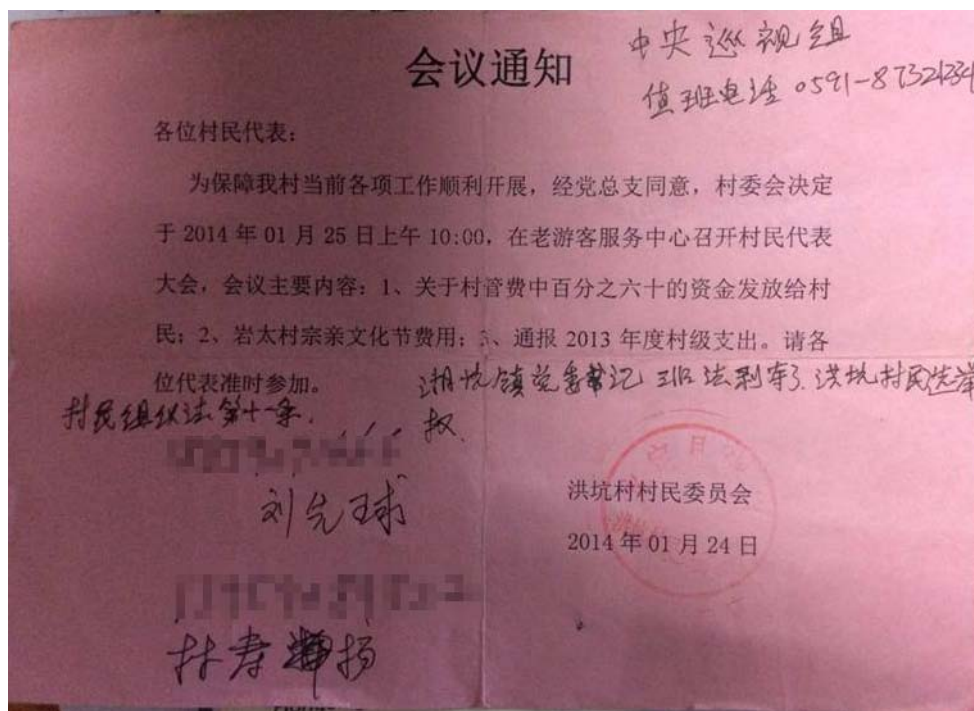 中央巡视组
会议通知
值班电话 0591-87321234
各位村民代表:
为保障我村当前各项工作顺利开展，经党总支同意，村委会决定
于 2014 年 01 月 25 日上午 10:00，在老游客服务中心召开村民代表
大会，会议主要内容：1、关于村管费中百分之六十的资金发放给村
民；2、岩太村宗亲文化节费用；3、通报 2013 年度村级支出。请各
位代表准时参加。
湖坑镇党委书记 法剥夺了洪坑村民选举
村民组织法第十一条.
权.
刘 球
洪坑村村民委员会
2014 年 01 月 24 日
林寿 扬